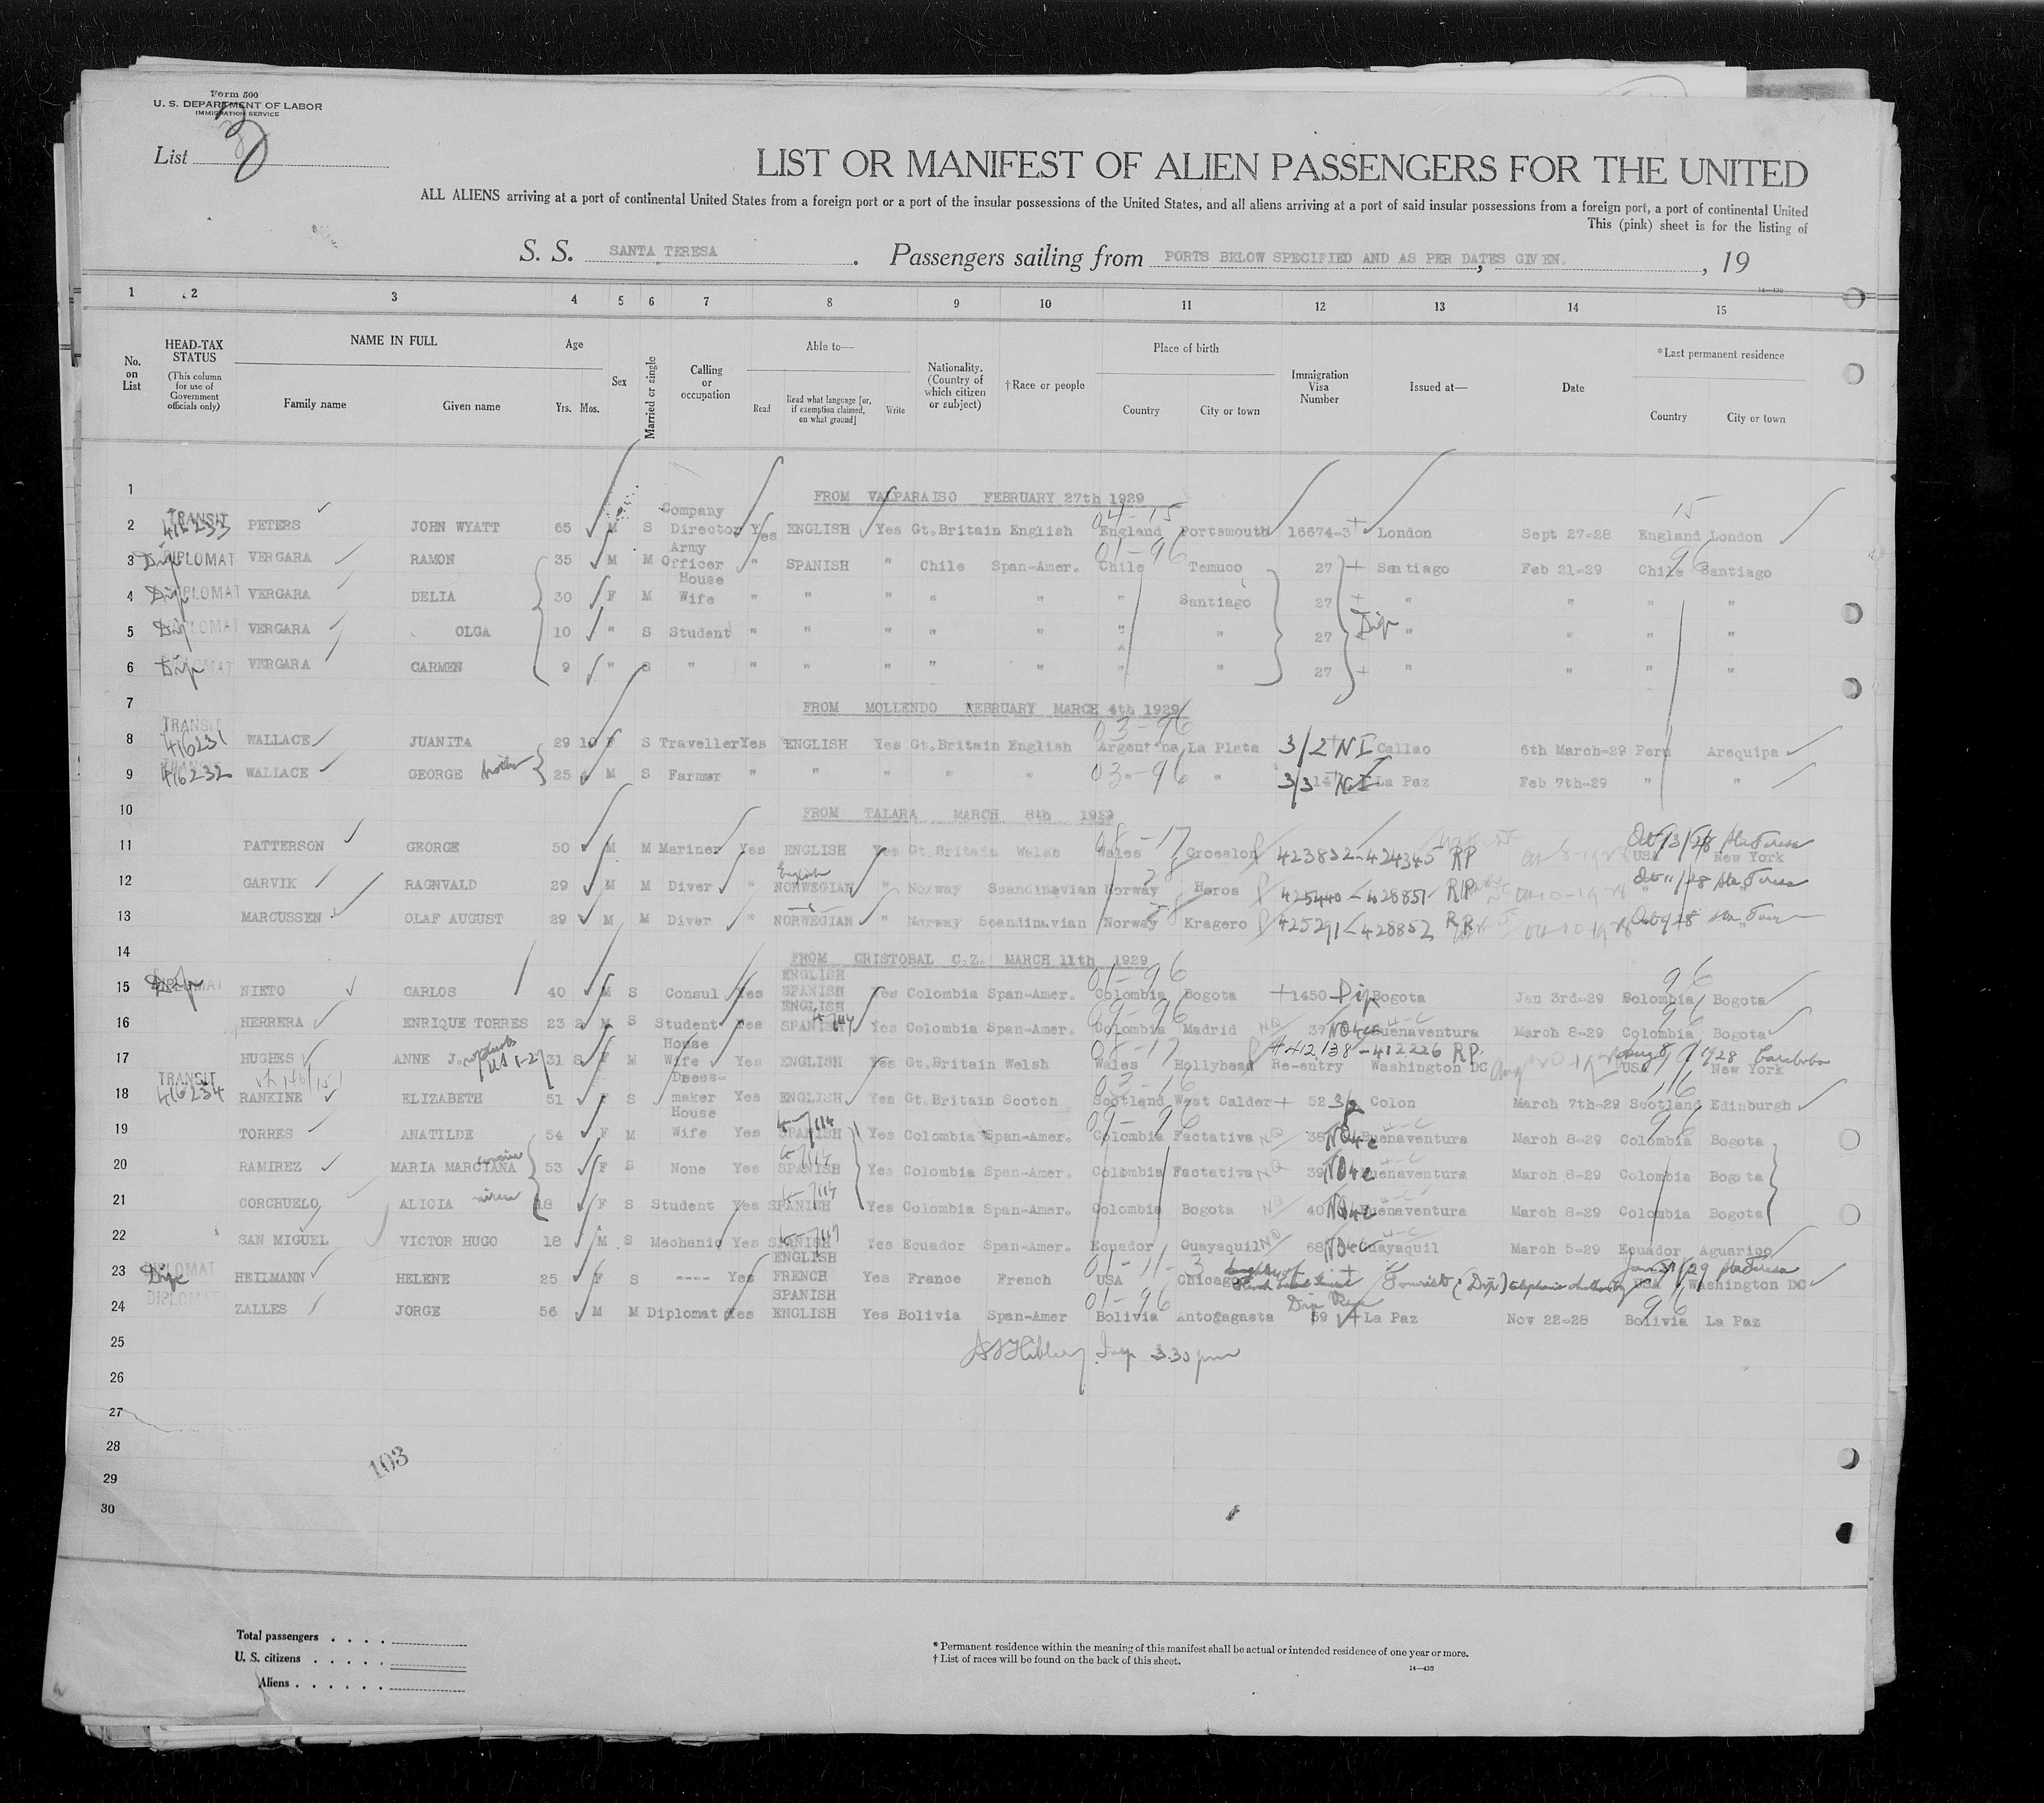 Form 500
U. S. DEPARTMENT OF LABOR
IMMIGRATION SERVICE
List
LIST OR MANIFEST OF ALIEN PASSENGERS FOR THE UNITED
ALL ALIENS arriving at a port of continental United States from a foreign port or a port of the insular possessions of the United States, and all aliens arriving at a port of said insular possessions from a foreign port, a port of continental United
This (pink) sheet is for the listing of
S. S. SANTA TERESA . Passengers sailing from PORTS BELOW SPECIFIED AND AS PER DATES GIVEN. , 19
14—430
1 2 3 4 5 6 7 8 9 10 11 12 13 14 15
No. on List
HEAD-TAX STATUS (This column for use of Government officials only)
NAME IN FULL
Family name Given name
Age
Yrs. Mos.
Sex
Married or single
Calling or occupation
Able to—
Read Read what language [or, if exemption claimed, on what ground] Write
Nationality. (Country of which citizen or subject)
†Race or people
Place of birth
Country City or town
Immigration Visa Number
Issued at—
Date
*Last permanent residence
Country City or town
1 FROM VALPARAISO FEBRUARY 27th 1929
04-15 15
2 TRANSIT 416233 PETERS JOHN WYATT 65 M S Company Director Yes ENGLISH Yes Gt.Britain English England Portsmouth 16674-3 London Sept 27-28 England London
01-96 96
3 DIPLOMAT Dip VERGARA RAMON 35 M M Army Officer " SPANISH " Chile Span-Amer. Chile Temuco 27 Santiago Feb 21-29 Chile Santiago
4 DIPLOMAT Dip VERGARA DELIA 30 F M House Wife " " " " " " Santiago 27 " " " "
5 DIPLOMAT Dip VERGARA OLGA 10 " S Student " " " " " " " 27 Dip " " " "
6 DIPLOMAT Dip VERGARA CARMEN 9 " S " " " " " " " " 27 " " " "
7 FROM MOLLENDO FEBRUARY MARCH 4th 1929
03-96
8 TRANSIT 416231 WALLACE JUANITA 29 10 F S Traveller Yes ENGLISH Yes Gt.Britain English Argentina La Plata 3/2 NI Callao 6th March-29 Peru Arequipa
9 TRANSIT 416232 WALLACE GEORGE brother 25 M S Farmer " " " " " 03-96 " 3/3 NI La Paz Feb 7th-29 " "
10 FROM TALARA MARCH 8th 1929
08-17
11 PATTERSON GEORGE 50 M M Mariner Yes ENGLISH Yes Gt.Britain Welsh Wales Groeslon 423832-424345 RP Oct 13/28 Sta Teresa USA New York
12 GARVIK RAGNVALD 29 M M Diver " English NORWEGIAN " Norway Scandinavian Norway Heros 425440-428851 RP Oct 11/28 Sta Teresa
13 MARCUSSEN OLAF AUGUST 29 M M Diver " NORWEGIAN " Norway Scandinavian Norway Kragero 425291-428852 RP
14 FROM CRISTOBAL C.Z. MARCH 11th 1929
01-96 96
15 DIPLOMAT Dip NIETO CARLOS 40 M S Consul Yes ENGLISH SPANISH Yes Colombia Span-Amer. Colombia Bogota 1450 Dip Bogota Jan 3rd-29 Colombia Bogota
09-96 96
16 HERRERA ENRIQUE TORRES 23 2 M S Student Yes ENGLISH SPANISH Yes Colombia Span-Amer. Colombia Madrid NQ 37 Buenaventura March 8-29 Colombia Bogota
08-17
17 HUGHES ANNE J. 31 8 F M House Wife Yes ENGLISH Yes Gt.Britain Welsh Wales Hollyhead 412138-412226 RP Re-entry Washington DC USA New York
03-16 16
18 TRANSIT 416234 RANKINE ELIZABETH 51 F S Dress-maker Yes ENGLISH Yes Gt.Britain Scotch Scotland West Calder 52 Colon March 7th-29 Scotland Edinburgh
09-96 96
19 TORRES ANATILDE 54 F M House Wife Yes SPANISH Yes Colombia Span-Amer. Colombia Factativa NQ 38 Buenaventura March 8-29 Colombia Bogota
20 RAMIREZ MARIA MARCIANA cousin 53 F S None Yes SPANISH Yes Colombia Span-Amer. Colombia Factativa NQ 39 Buenaventura March 8-29 Colombia Bogota
21 CORCHUELO ALICIA niece 18 F S Student Yes SPANISH Yes Colombia Span-Amer. Colombia Bogota NQ 40 Buenaventura March 8-29 Colombia Bogota
22 SAN MIGUEL VICTOR HUGO 18 M S Mechanic Yes SPANISH Yes Ecuador Span-Amer. Ecuador Guayaquil NQ 68 Guayaquil March 5-29 Ecuador Aguarico
01-11-3
23 DIPLOMAT Dip HEILMANN HELENE 25 F S ---- Yes ENGLISH FRENCH Yes France French USA Chicago Tourist (Dip) USA Washington DC
01-96 96
24 DIPLOMAT ZALLES JORGE 56 M M Diplomat Yes SPANISH ENGLISH Yes Bolivia Span-Amer Bolivia Antofagasta 59 La Paz Nov 22-28 Bolivia La Paz
25 Insp 3.30 pm
26
27
28
103
29
30
Total passengers . . . .
U. S. citizens . . . . .
Aliens . . . . . .
* Permanent residence within the meaning of this manifest shall be actual or intended residence of one year or more.
† List of races will be found on the back of this sheet.
14—430